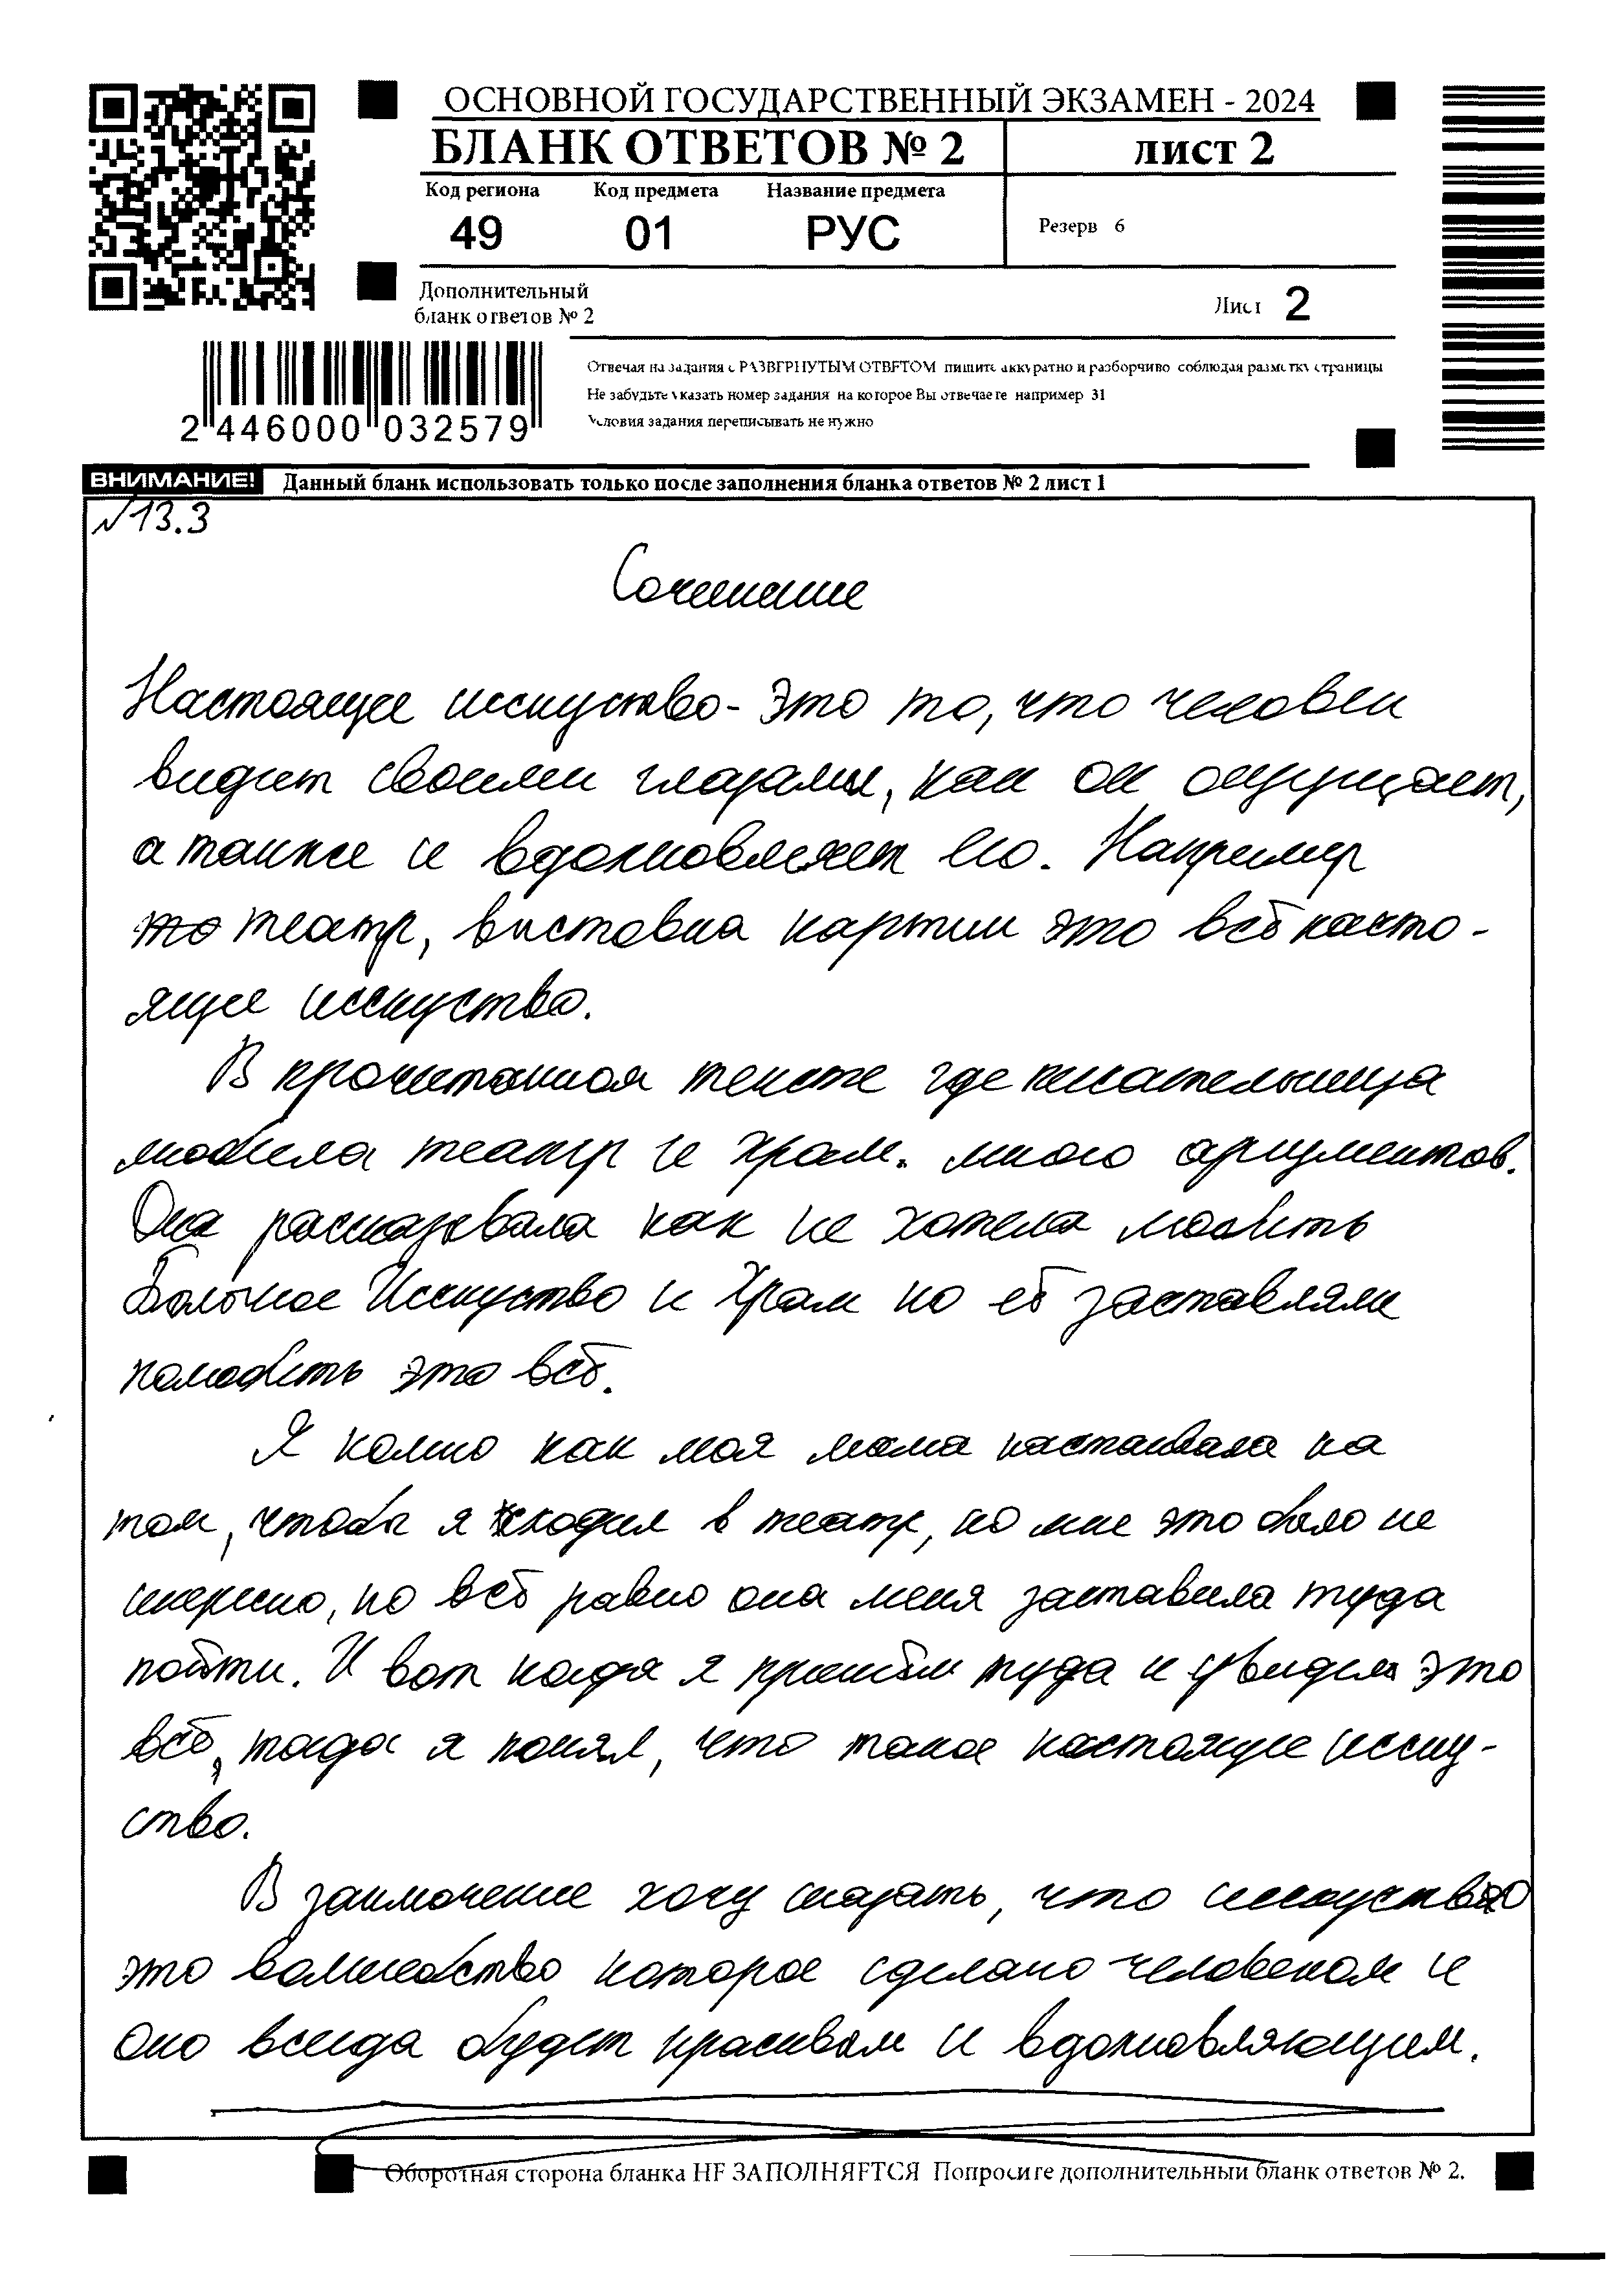 ОСНОВНОЙ ГОСУДАРСТВЕННЫЙ ЭКЗАМЕН - 2024
БЛАНК ОТВЕТОВ № 2
ЛИСТ 2
Код региона Код предмета Название предмета
49 01 РУС
Резерв 6
Дополнительный
бланк ответов № 2
Лист 2
Отвечая на задания с РАЗВЕРНУТЫМ ОТВЕТОМ пишите аккуратно и разборчиво соблюдая разметку страницы
Не забудьте указать номер задания на которое Вы отвечаете например 31
Условия задания переписывать не нужно
2 446000 032579
ВНИМАНИЕ! Данный бланк использовать только после заполнения бланка ответов № 2 лист 1
№13.3
Сочинение
Настоящее исскуство - это то, что человек
видит своими глазами, как он ощущает,
а также и вдохновляет его. Например
то театр, выстовка картин это всё насто-
ящее исскуство.
В прочитанном тексте где писательница
любила театр и храм. много аргументов.
Она рассказовала как не хотела любить
Большое Исскуство и Храм но её заставляли
полюбить это всё.
Я помню как моя мама настаивала на
том, чтобы я сходил в театр, но мне это было не
интересно, но всё равно она меня заставила туда
пойти. И вот когда я пришёл туда и увидел это
всё, тогда я понял, что такое настоящее исску-
ство.
В заключение хочу сказать, что исскуство
это волшебство которое сделано человеком и
Оно всегда будет красивым и вдохновляющим.
Оборотная сторона бланка НЕ ЗАПОЛНЯЕТСЯ Попросите дополнительный бланк ответов № 2.